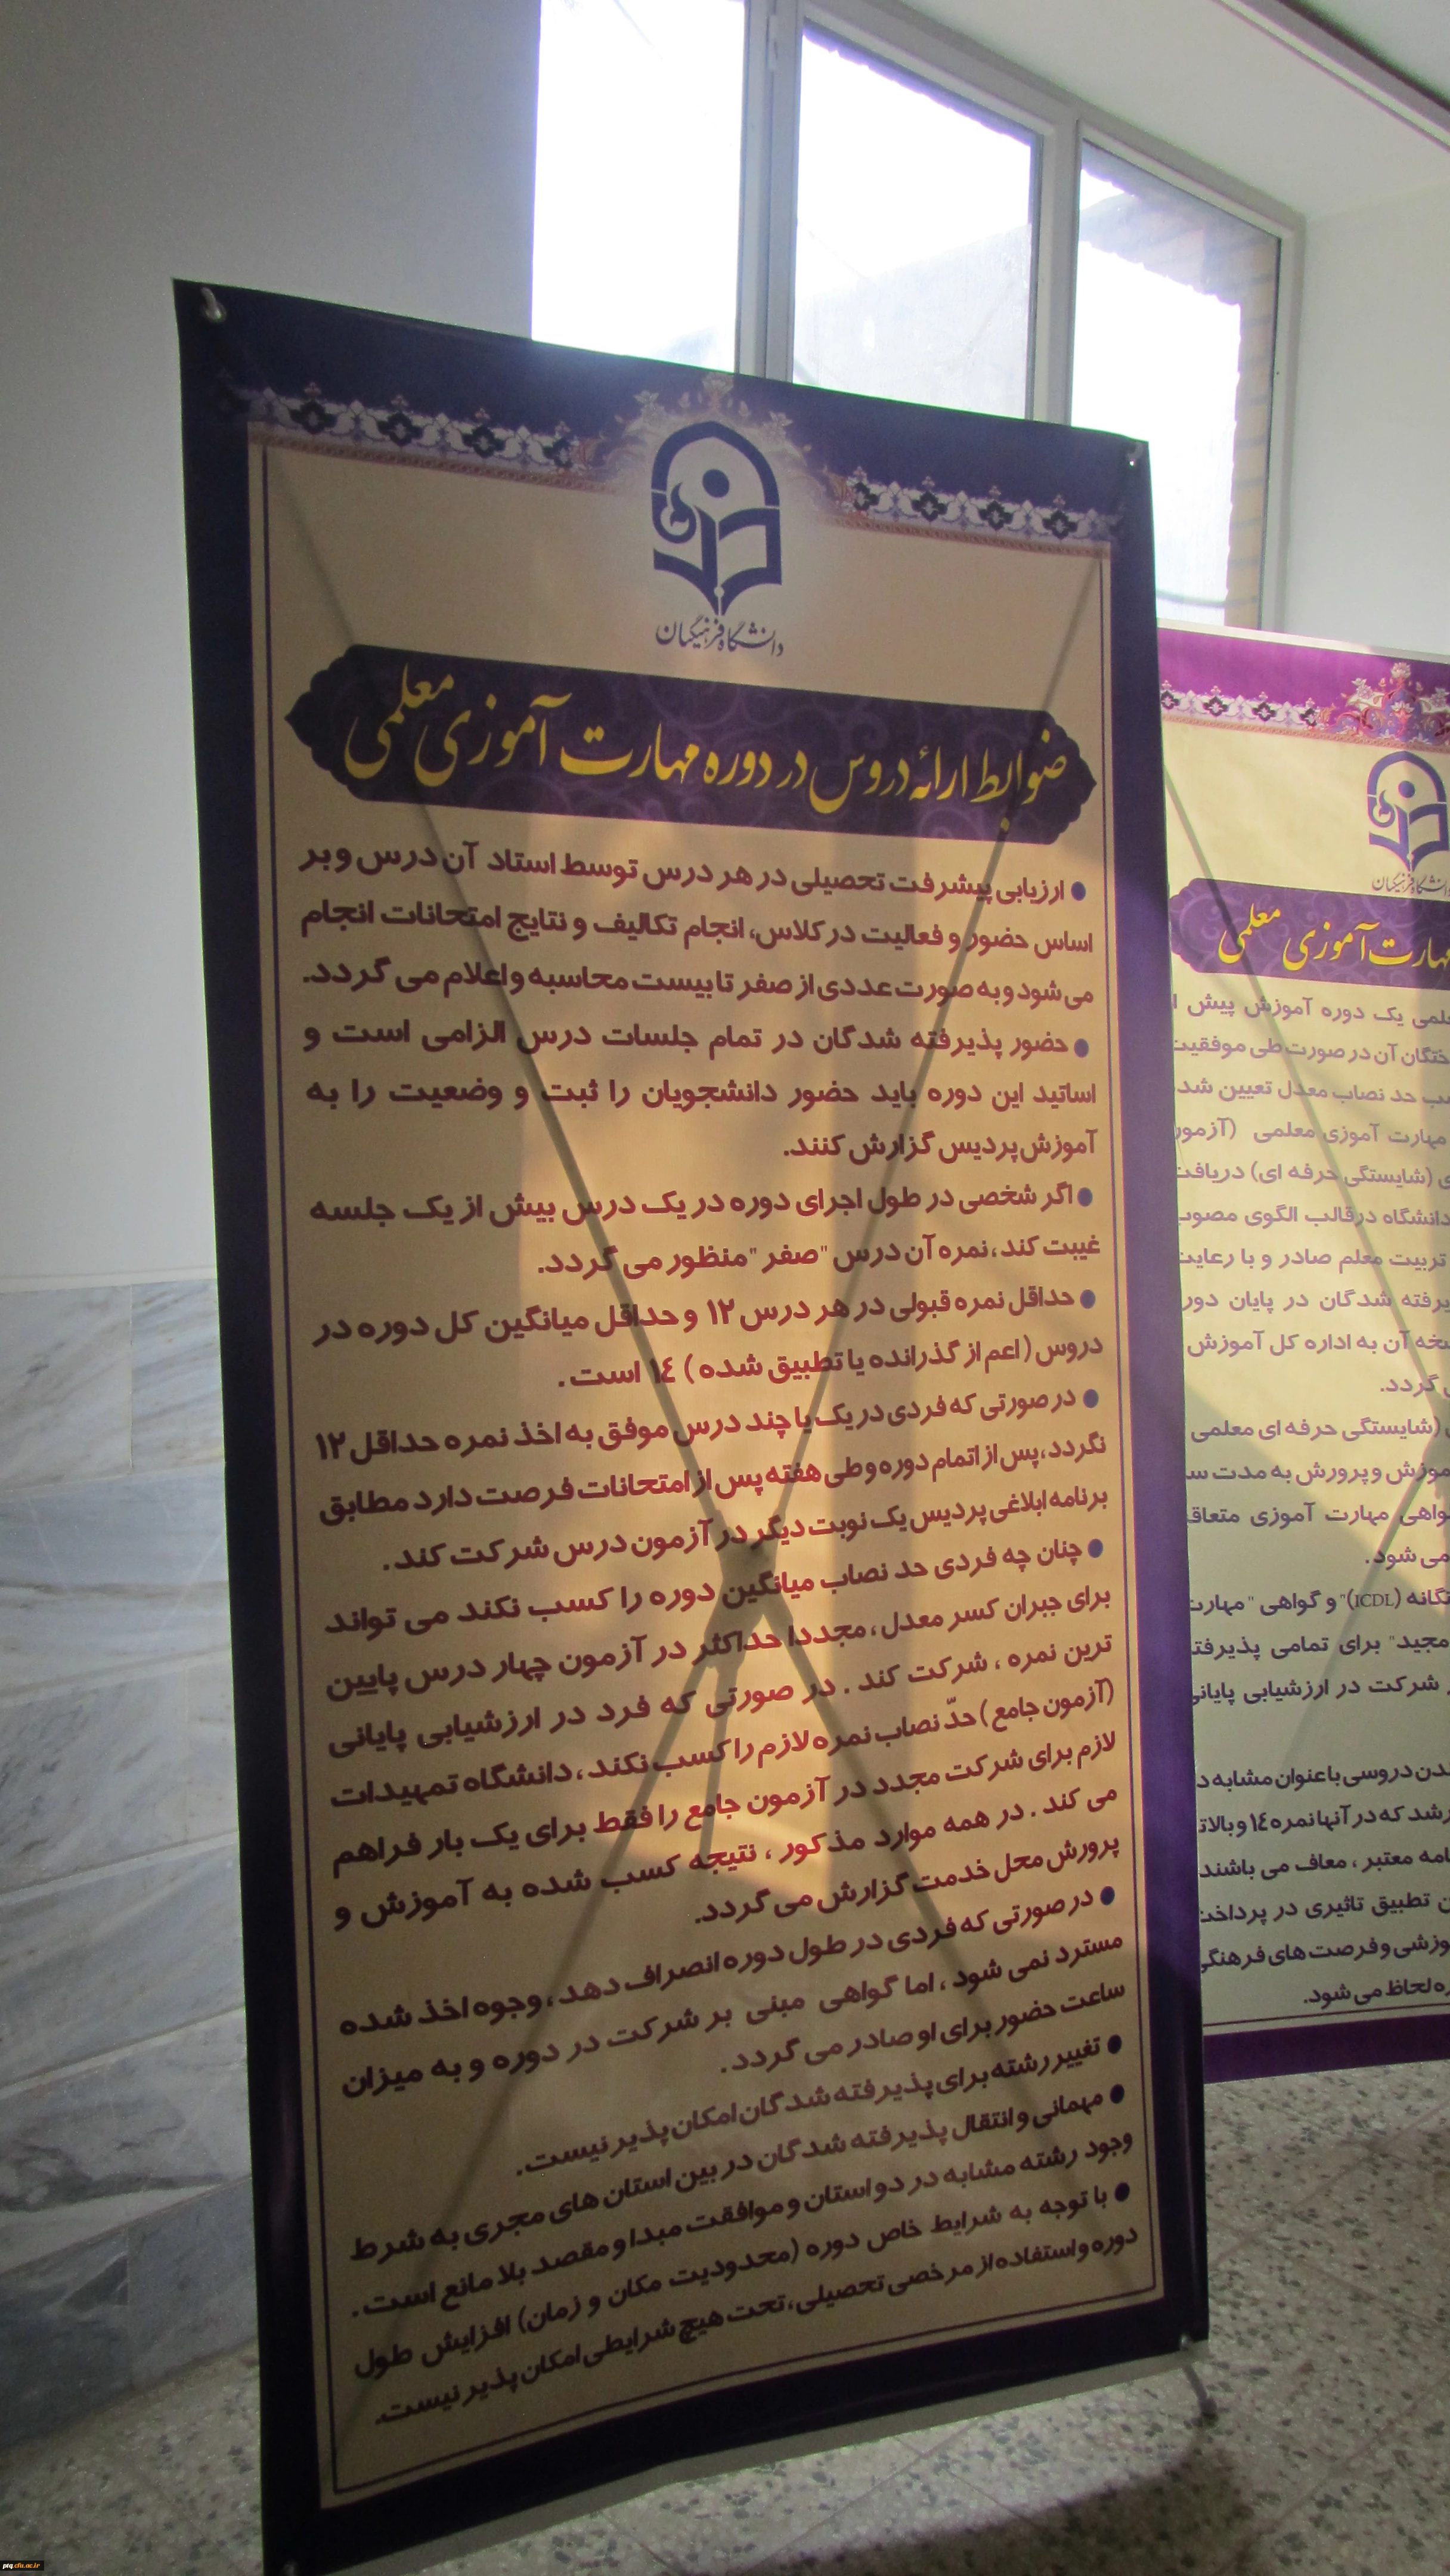 دانشگاه فرهنگیان
ضوابط ارائه دروس در دوره مهارت آموزی معلمی
● ارزیابی پیشرفت تحصیلی در هر درس توسط استاد آن درس و بر
اساس حضور و فعالیت در کلاس، انجام تکالیف و نتایج امتحانات انجام
می شود و به صورت عددی از صفر تا بیست محاسبه و اعلام می گردد.
● حضور پذیرفته شدگان در تمام جلسات درس الزامی است و
اساتید این دوره باید حضور دانشجویان را ثبت و وضعیت را به
آموزش پردیس گزارش کنند.
● اگر شخصی در طول اجرای دوره در یک درس بیش از یک جلسه
غیبت کند، نمره آن درس "صفر" منظور می گردد.
● حداقل نمره قبولی در هر درس ۱۲ و حداقل میانگین کل دوره در
دروس (اعم از گذرانده یا تطبیق شده) ۱٤ است.
● در صورتی که فردی در یک یا چند درس موفق به اخذ نمره حداقل ۱۲
نگردد، پس از اتمام دوره و طی هفته پس از امتحانات فرصت دارد مطابق
برنامه ابلاغی پردیس یک نوبت دیگر در آزمون درس شرکت کند.
● چنان چه فردی حد نصاب میانگین دوره را کسب نکند می تواند
برای جبران کسر معدل، مجددا حداکثر در آزمون چهار درس پایین
ترین نمره، شرکت کند. در صورتی که فرد در ارزشیابی پایانی
(آزمون جامع) حدّ نصاب نمره لازم را کسب نکند، دانشگاه تمهیدات
لازم برای شرکت مجدد در آزمون جامع را فقط برای یک بار فراهم
می کند. در همه موارد مذکور، نتیجه کسب شده به آموزش و
پرورش محل خدمت گزارش می گردد.
● در صورتی که فردی در طول دوره انصراف دهد، وجوه اخذ شده
مسترد نمی شود، اما گواهی مبنی بر شرکت در دوره و به میزان
ساعت حضور برای او صادر می گردد.
● تغییر رشته برای پذیرفته شدگان امکان پذیر نیست.
● مهمانی و انتقال پذیرفته شدگان در بین استان های مجری به شرط
وجود رشته مشابه در دو استان و موافقت مبدا و مقصد بلا مانع است.
● با توجه به شرایط خاص دوره (محدودیت مکان و زمان) افزایش طول
دوره و استفاده از مرخصی تحصیلی، تحت هیچ شرایطی امکان پذیر نیست.
مهارت آموزی معلمی
یک دوره آموزش پیش
آن در صورت طی موفقیت
حد نصاب معدل تعیین شد
مهارت آموزی معلمی (آزمون
(شایستگی حرفه ای) دریافت
دانشگاه در قالب الگوی مصوب
تربیت معلم صادر و با رعایت
شدگان در پایان دور
آن به اداره کل آموزش
گردد.
(شایستگی حرفه ای معلمی
و پرورش به مدت
مهارت آموزی
می شود.
(ICDL)" و گواهی "مهارت
مجید" برای تمامی
شرکت در ارزشیابی پایانی
دروسی با عنوان مشابه
که در آنها نمره ۱٤ و بالاتر
معتبر، معاف می باشند
تطبیق تاثیری در پرداخت
و فرصت های فرهنگی
لحاظ می شود.
ptq.cfu.ac.ir